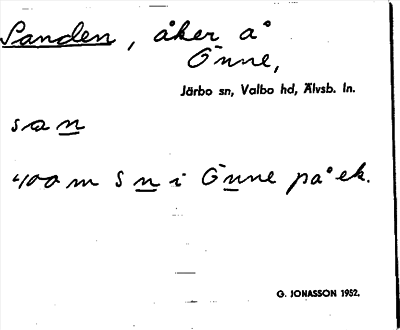 Sanden, åker å
Önne,
Järbo sn, Valbo hd, Älvsb. ln.
san
400 m S n i Önne på ek.
G. JONASSON 1952.